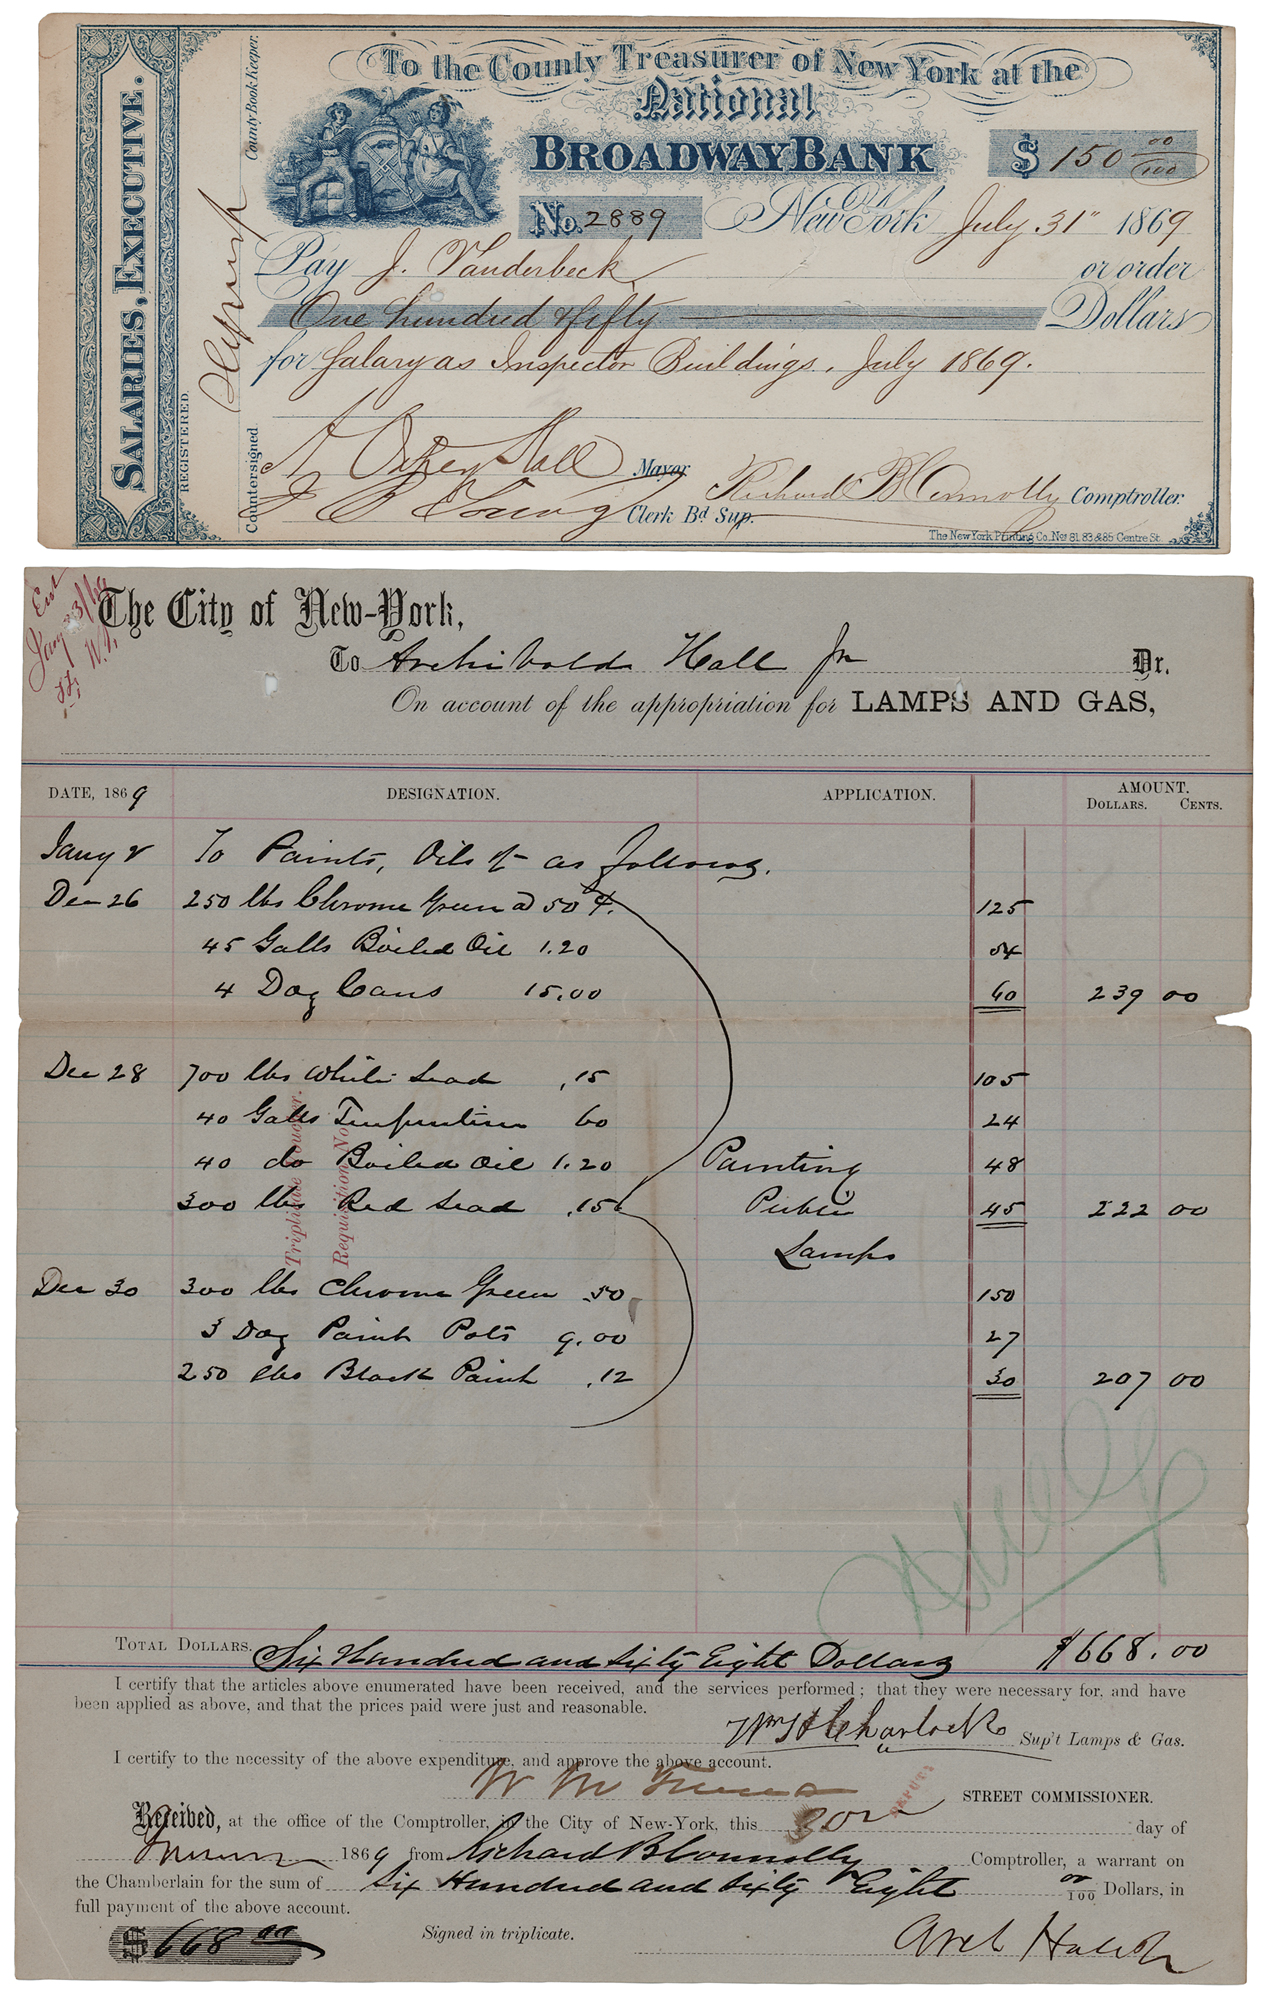 SALARIES, EXECUTIVE.
REGISTERED.
County Book Keeper.
Countersigned
To the County Treasurer of New York at the
National
BROADWAY BANK
$ 150 00/100
No. 2889
New York July 31" 1869
Pay J. Vanderbeck or order
One hundred & fifty Dollars
for Salary as Inspector Buildings, July 1869.
A Oakey Hall Mayor
Richard B Connolly Comptroller.
J B Young Clerk Bd Sup.
The New York Printing Co. Nos 81. 83 & 85 Centre St.
The City of New-York,
To Archibald Hall Jr Dr.
On account of the appropriation for LAMPS AND GAS,
DATE, 1869 DESIGNATION. APPLICATION. AMOUNT.
DOLLARS. CENTS.
Jany 2 To Paints, Oils &c as follows.
Dec 26 250 lbs Chrome Green @ 50 ¢. 125
45 Galls Boiled Oil 1.20 54
4 Doz Cans 15.00 60 239 00
Dec 28 700 lbs White Lead .15 105
40 Galls Turpentine 60 24
40 do Boiled Oil 1.20 Painting 48
300 lbs Red Lead .15 Public 45 222 00
Lamps
Triplicate Voucher.
Requisition No.
Dec 30 300 lbs Chrome Green .50 150
3 Doz Paint Pots 9.00 27
250 lbs Black Paint .12 30 207 00
TOTAL DOLLARS. Six Hundred and Sixty Eight Dollars $668.00
I certify that the articles above enumerated have been received, and the services performed; that they were necessary for, and have
been applied as above, and that the prices paid were just and reasonable.
Sup't Lamps & Gas.
I certify to the necessity of the above expenditure, and approve the above account.
DEPUTY
STREET COMMISSIONER.
Received, at the office of the Comptroller, in the City of New-York, this day of
1869 from Richard B Connolly Comptroller, a warrant on
the Chamberlain for the sum of Six Hundred and Sixty Eight 00/100 Dollars, in
full payment of the above account.
$ 668 00 Signed in triplicate.
Arch Hall Jr